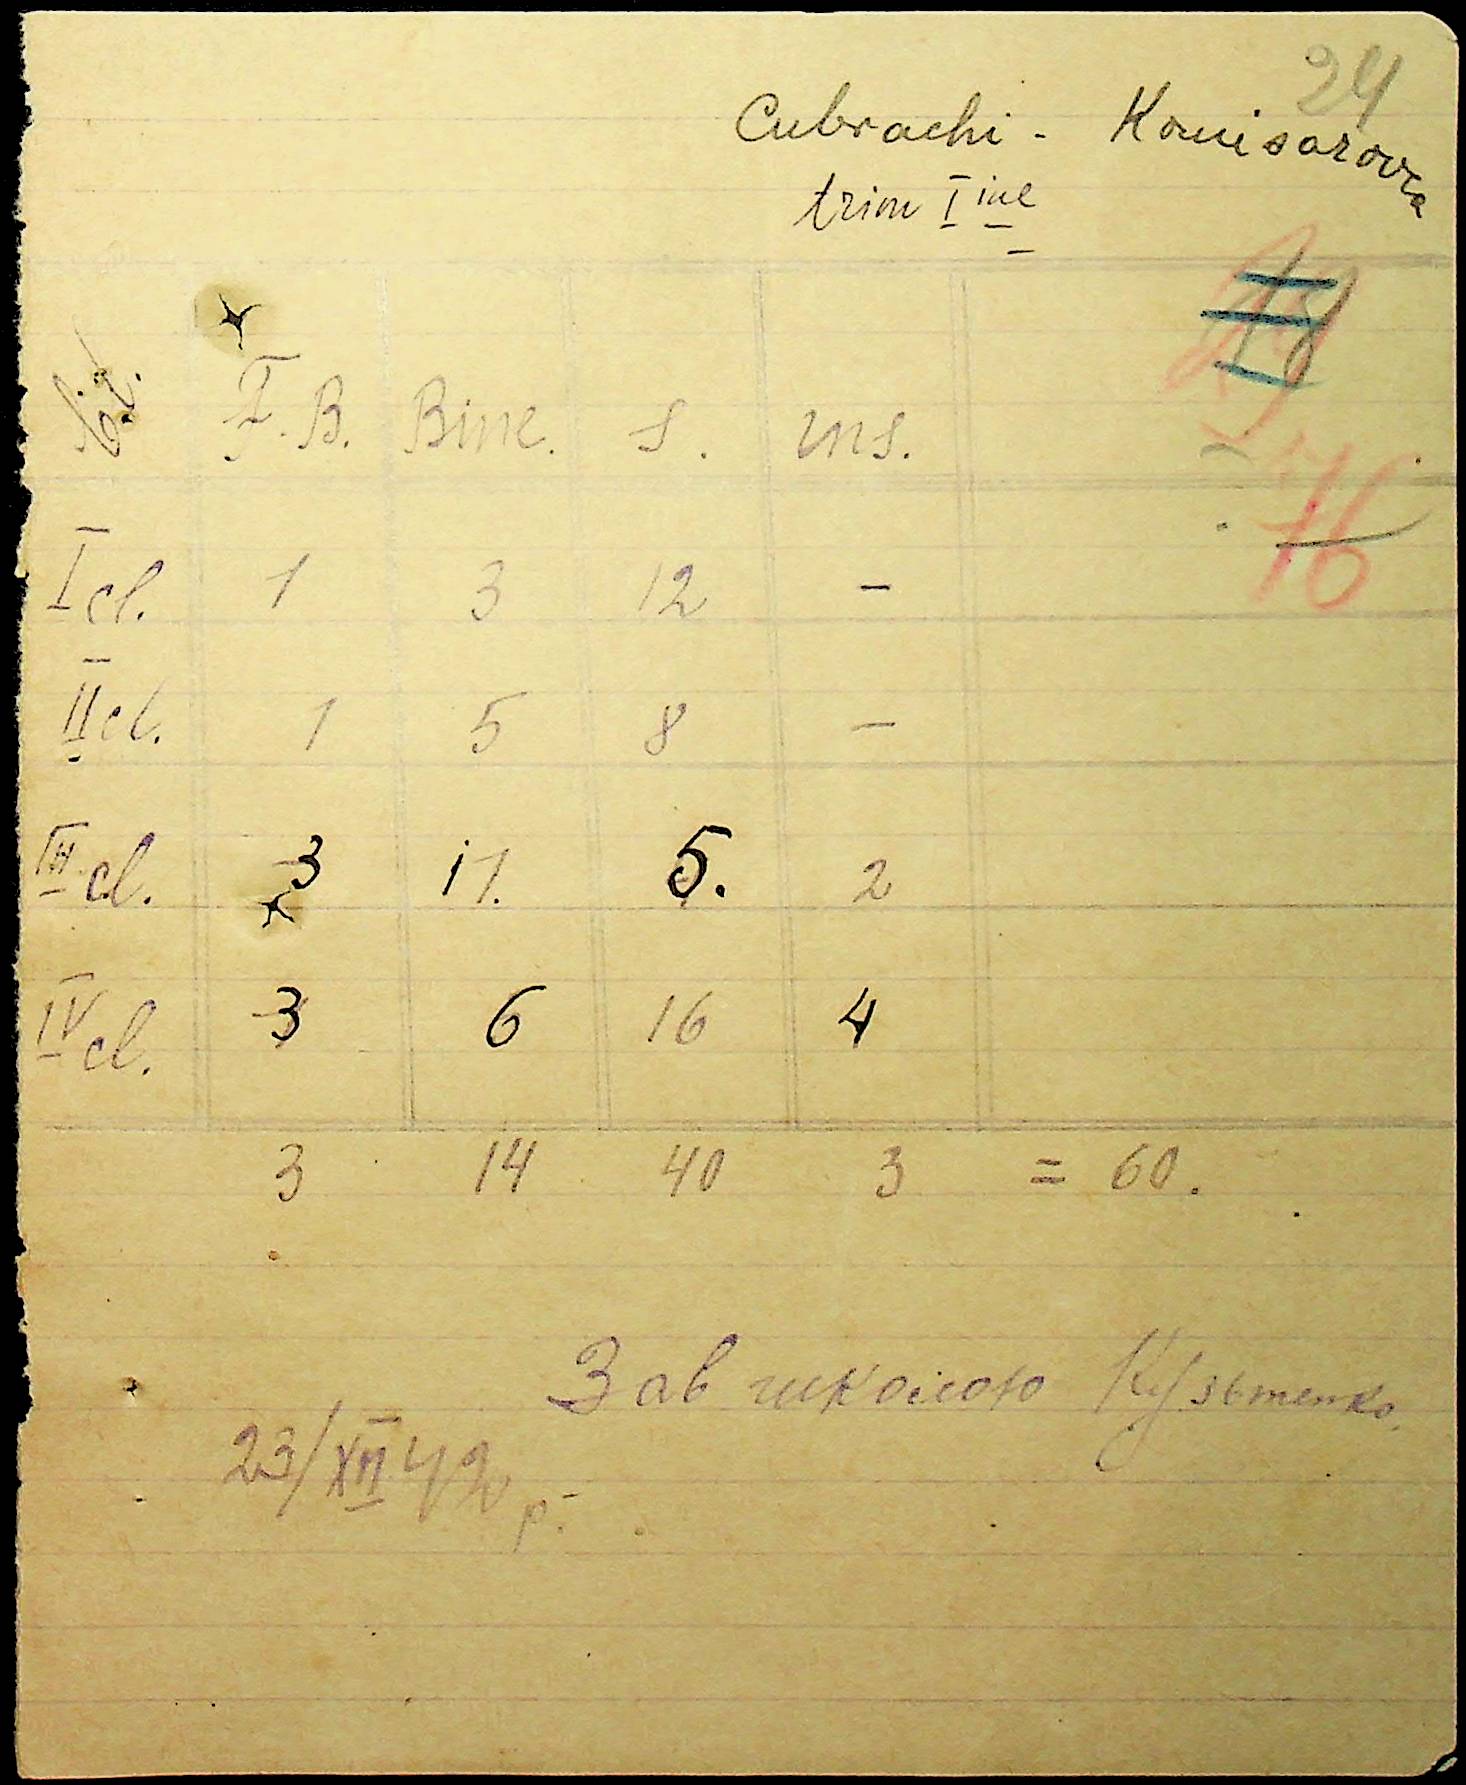 24
Cubrachi - Komisarovca
trim I ine
76
Cl. F.B. Bine. S. ins.
I cl. 1 3 12 -
II cl. 1 5 8 -
III cl. 3 17. 5. 2
IV cl. 3 6 16 4
3 14 40 3 = 60.
Зав школою Кузьменко.
23/XII 42 р.